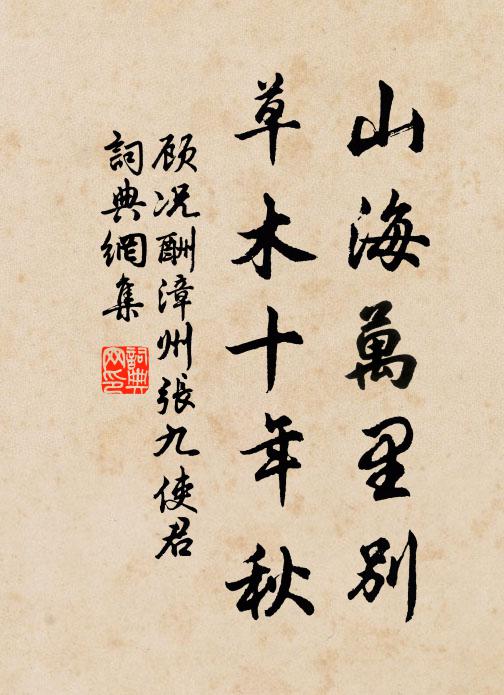 山海萬里别
草木十年秋
顾况酬漳州張九使君
詞典網集
詞典网印